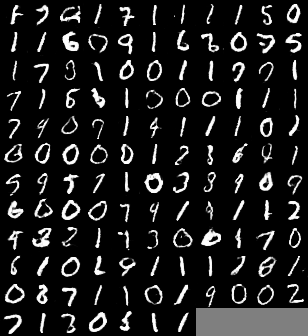 1 7 2 1 7 1 1 1 1 5 0
1 1 6 0 9 1 6 7 0 7 5
1 7 3 1 0 0 1 1 7 7 1
7 1 6 8 1 0 0 0 1 1 1
7 9 0 7 1 4 1 1 1 0 1
0 0 0 0 0 1 7 8 6 9 1
5 9 5 7 1 0 3 3 9 0 9
6 0 0 0 7 9 1 9 1 1 2
4 2 2 1 1 3 0 0 1 7 0
6 1 0 2 9 1 1 1 7 8 1
0 8 7 1 1 0 1 9 0 0 2
7 1 3 0 5 1 1